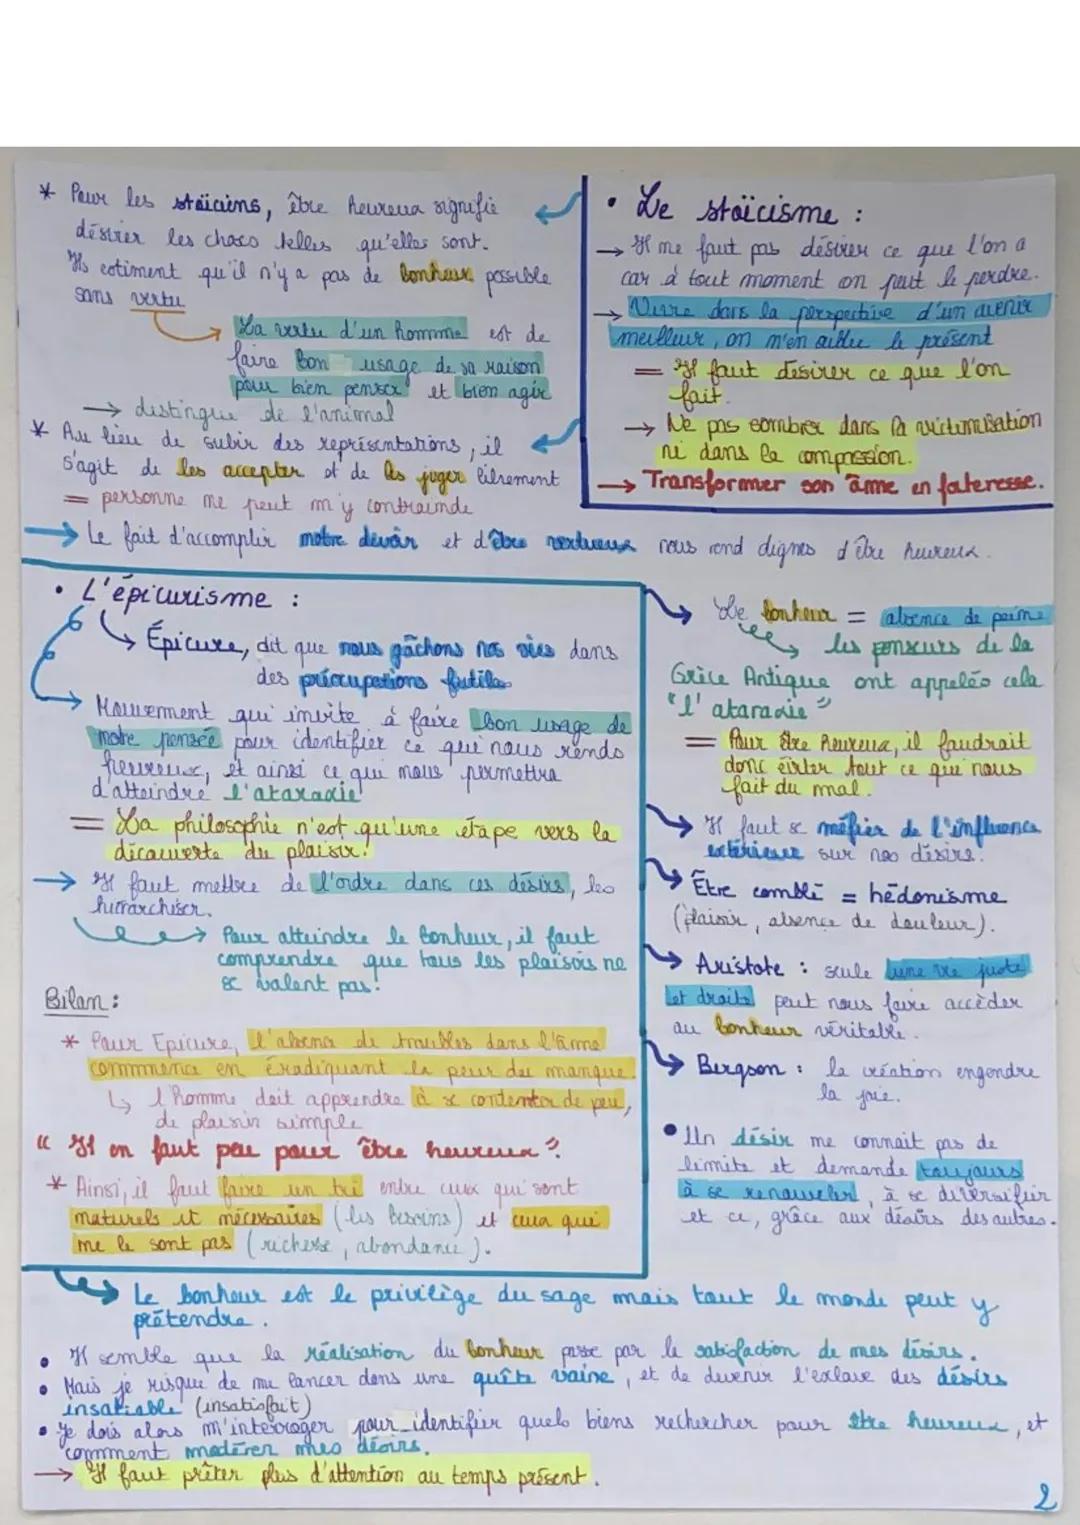 * Pour les stoïciens, être heureux signifie
désirer les choses telles qu'elles sont.
Ils estiment qu'il n'y a pas de bonheur possible
sans vertu
La vertu d'un homme est de
faire bon usage de sa raison
pour bien penser et bien agir
→ distingue de l'animal
* Au lieu de subir des représentations, il
s'agit de les accepter et de les juger librement
= personne ne peut m'y contraindre
→ Le fait d'accomplir notre devoir et d'être vertueux nous rend dignes d'être heureux.
• Le stoïcisme :
→ Il ne faut pas désirer ce que l'on a
car à tout moment on peut le perdre.
→ Vivre dans la perspective d'un avenir
meilleur, on n'en oublie le présent
= Il faut désirer ce que l'on
fait.
→ Ne pas sombrer dans la victimisation
ni dans la compassion.
→ Transformer son âme en forteresse.
• L'épicurisme :
Épicure, dit que nous gâchons nos vies dans
des préocupations futiles
Mouvement qui invite à faire bon usage de
notre pensée pour identifier ce qui nous rends
heureux, et ainsi ce qui nous permettra
d'atteindre l'ataraxie
= La philosophie n'est qu'une étape vers la
découverte du plaisir!
→ Il faut mettre de l'ordre dans ces désirs, les
hiérarchiser.
Pour atteindre le bonheur, il faut
comprendre que tous les plaisirs ne
se valent pas!
Bilan :
* Pour Epicure, l'absence de troubles dans l'âme
commence en éradiquant la peur du manque.
↳ l'homme doit apprendre à se contenter de peu,
de plaisir simple
" Il en faut peu pour être heureux ".
* Ainsi, il faut faire un tri entre ceux qui sont
naturels et nécessaires (les besoins) et ceux qui
ne le sont pas (richesse, abondance).
Le bonheur = absence de peine
les penseurs de la
Grèce Antique ont appelés cela
"l'ataraxie"
= Pour être heureux, il faudrait
donc éviter tout ce qui nous
fait du mal.
Il faut se méfier de l'influence
extérieure sur nos désirs.
Être comblé = hédonisme
(plaisir, absence de douleur).
Aristote : seule une vie juste
et droite peut nous faire accéder
au bonheur véritable.
Bergson : la création engendre
la joie.
• Un désir ne connait pas de
limite et demande toujours
à se renouveler, à se diversifier
et ce, grâce aux désirs des autres.
Le bonheur est le privilège du sage mais tout le monde peut y
prétendre.
• Il semble que la réalisation du bonheur passe par la satisfaction de mes désirs.
• Mais je risque de me lancer dans une quête vaine, et de devenir l'esclave des désirs
insatiable (insatisfait)
• Je dois alors m'interroger pour identifier quels biens rechercher pour être heureux, et
comment modérer mes désirs.
→ Il faut prêter plus d'attention au temps présent.
2